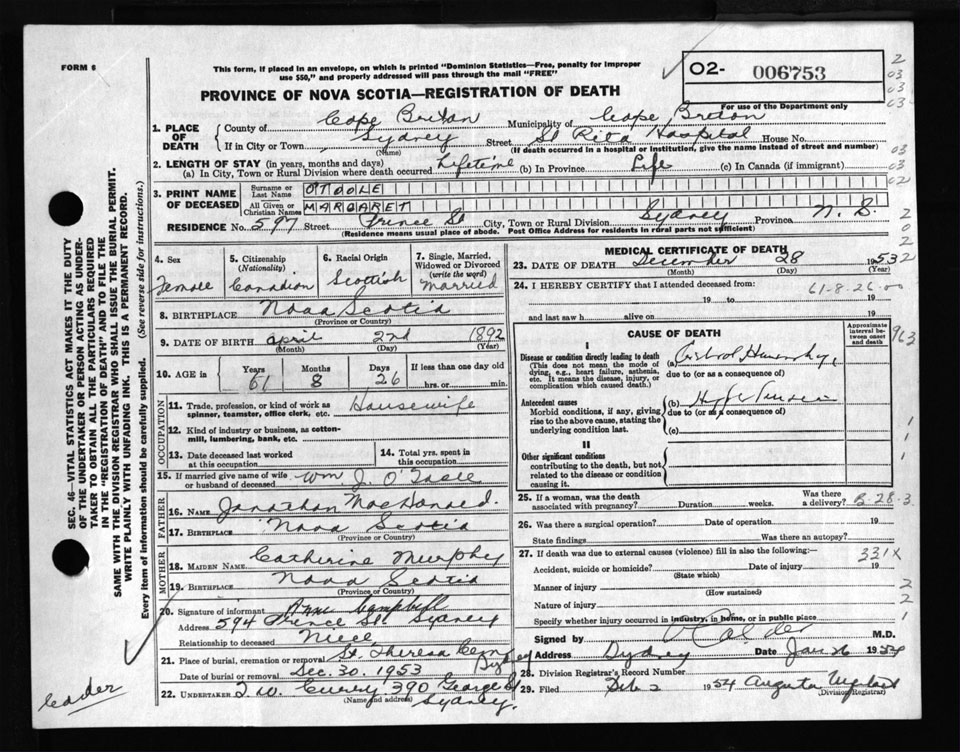 FORM 6
This form, if placed in an envelope, on which is printed "Dominion Statistics—Free, penalty for improper
use $50," and properly addressed will pass through the mail "FREE"
O2- 006753
PROVINCE OF NOVA SCOTIA—REGISTRATION OF DEATH
For use of the Department only
1. PLACE OF DEATH
County of Cape Breton Municipality of Cape Breton
If in City or Town Sydney Street St Rita Hospital House No.
(Name) (If death occurred in a hospital or institution, give the name instead of street and number)
2. LENGTH OF STAY (in years, months and days)
(a) In City, Town or Rural Division where death occurred Lifetime (b) In Province Life (c) In Canada (if immigrant)
3. PRINT NAME OF DECEASED
Surname or Last Name O'TOOLE
All Given or Christian Names MARGARET
RESIDENCE No. 597 Street Prince St City, Town or Rural Division Sydney Province N. S.
(Residence means usual place of abode. Post Office Address for residents in rural parts not sufficient)
4. Sex Female
5. Citizenship (Nationality) Canadian
6. Racial Origin Scottish
7. Single, Married, Widowed or Divorced (write the word) Married
8. BIRTHPLACE Nova Scotia
(Province or Country)
9. DATE OF BIRTH April 2nd 1892
(Month) (Day) (Year)
10. AGE in Years 61 Months 8 Days 26 If less than one day old hrs. or min.
OCCUPATION
11. Trade, profession, or kind of work as spinner, teamster, office clerk, etc. Housewife
12. Kind of industry or business, as cotton-mill, lumbering, bank, etc.
13. Date deceased last worked at this occupation
14. Total yrs. spent in this occupation
15. If married give name of wife or husband of deceased Wm J. O'Toole
FATHER
16. NAME Jonathan MacDonald.
17. BIRTHPLACE Nova Scotia
(Province or Country)
MOTHER
18. MAIDEN NAME Catherine Murphy
19. BIRTHPLACE Nova Scotia
(Province or Country)
20. Signature of informant Ann Campbell
Address 594 Prince St. Sydney
Relationship to deceased Niece
21. Place of burial, cremation or removal St. Theresa Cem Sydney
Date of burial or removal Dec. 30. 1953
22. UNDERTAKER Curry, 390 George St
Sydney.
(Name and address)
MEDICAL CERTIFICATE OF DEATH
23. DATE OF DEATH December 28 1953
(Month) (Day) (Year)
24. I HEREBY CERTIFY that I attended deceased from:
61-8-26-00
19 to 19
and last saw h alive on 19
CAUSE OF DEATH
Approximate interval between onset and death
I
Disease or condition directly leading to death
(This does not mean the mode of dying, e.g., heart failure, asthenia, etc. It means the disease, injury, or complication which caused death.)
(a)
due to (or as a consequence of)
Antecedent causes
Morbid conditions, if any, giving rise to the above cause, stating the underlying condition last.
(b)
due to (or as a consequence of)
(c)
II
Other significant conditions
contributing to the death, but not related to the disease or condition causing it.
25. If a woman, was the death associated with pregnancy? Duration weeks. Was there a delivery?
26. Was there a surgical operation? Date of operation 19
State findings Was there an autopsy?
27. If death was due to external causes (violence) fill in also the following:
331X
Accident, suicide or homicide? Date of injury 19
(State which)
Manner of injury
(How sustained)
Nature of injury
Specify whether injury occurred in industry, in home, or in public place
Signed by Calder M.D.
Address Sydney Date Jan 26 1954
28. Division Registrar's Record Number
29. Filed Feb 2 1954 Augusta
(Division Registrar)
SEC. 46—VITAL STATISTICS ACT MAKES IT THE DUTY
OF THE UNDERTAKER OR PERSON ACTING AS UNDER-
TAKER TO OBTAIN ALL THE PARTICULARS REQUIRED
IN THE "REGISTRATION OF DEATH" AND TO FILE THE
SAME WITH THE DIVISION REGISTRAR WHO SHALL ISSUE THE BURIAL PERMIT.
WRITE PLAINLY WITH UNFADING INK. THIS IS A PERMANENT RECORD.
Every item of information should be carefully supplied. (See reverse side for instructions.)